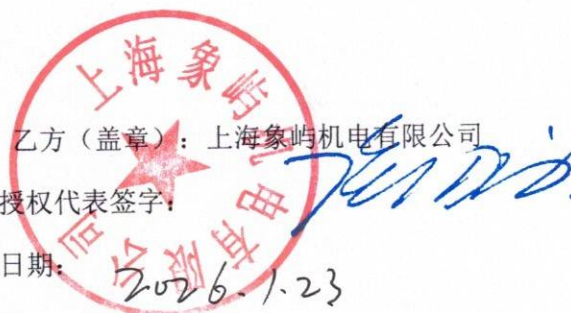 上海象屿机电有限公司
乙方（盖章）：上海象屿机电有限公司
授权代表签字：
日期：2026.1.23